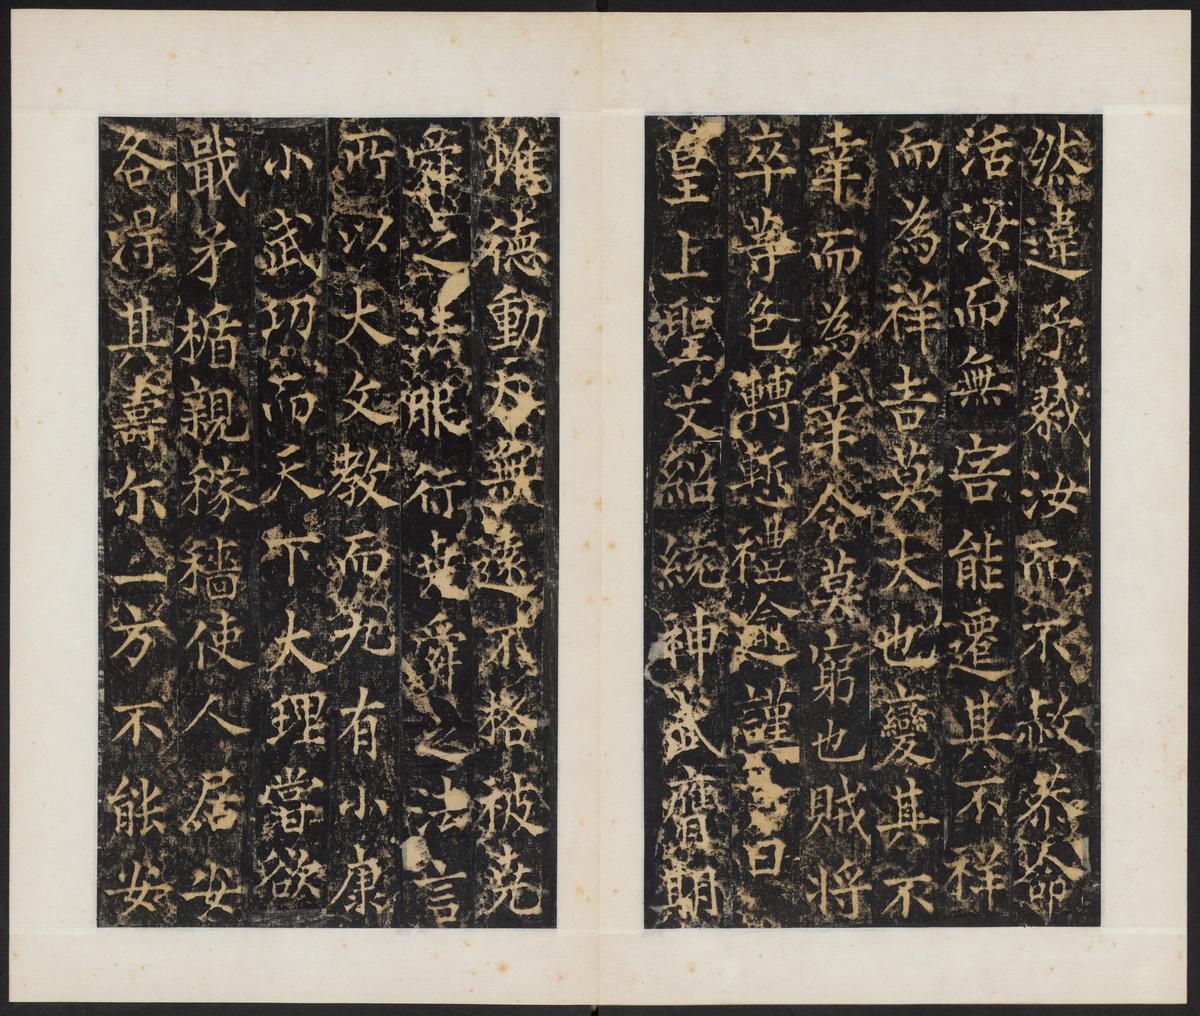 然違予戮汝而不赦恭命
活汝而無害能遷其不祥
而為祥吉莫大也變其不
幸而為幸令莫窮也賊將
卒等色轉慙禮逾謹
曰
皇上聖文紹繞神武膺期
雖德動天無遠不格彼堯
舜之法服行堯舜之法言
所以大文教而九有小康
小武功而天下大理嘗欲
戢矛楯親稼穡使人居安
各得其壽尔一方不能安